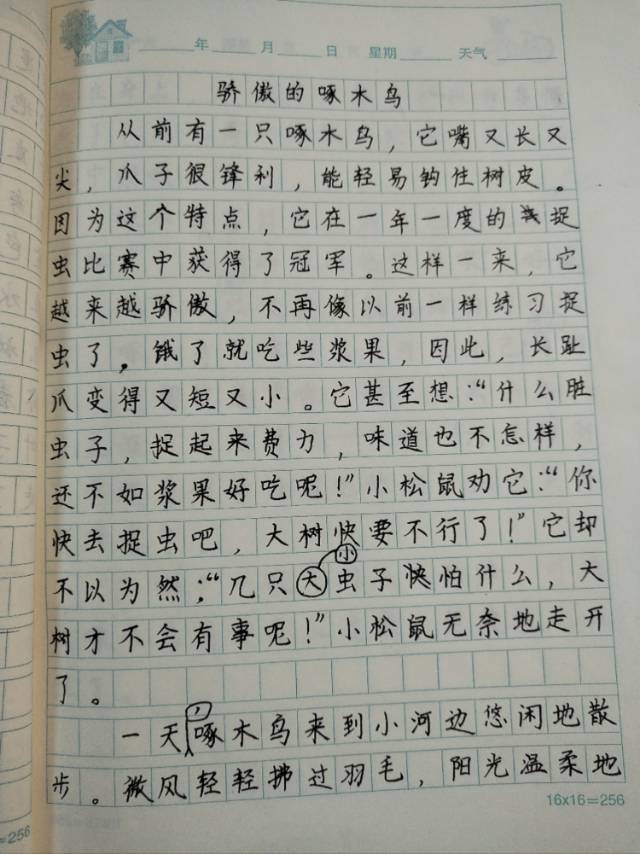 年 月 日 星期 天气
骄傲的啄木鸟
从前有一只啄木鸟，它嘴又长又
尖，爪子很锋利，能轻易钩住树皮。
因为这个特点，它在一年一度的捉
虫比赛中获得了冠军。这样一来，它
越来越骄傲，不再像以前一样练习捉
虫了，饿了就吃些浆果，因此，长趾
爪变得又短又小。它甚至想：“什么脏
虫子，捉起来费力，味道也不怎样，
还不如浆果好吃呢！”小松鼠劝它：“你
快去捉虫吧，大树快要不行了！”它却
不以为然：“几只小虫子怕什么，大
树才不会有事呢！”小松鼠无奈地走开
了。
一天，啄木鸟来到小河边悠闲地散
步。微风轻轻拂过羽毛，阳光温柔地
16x16=256
=256